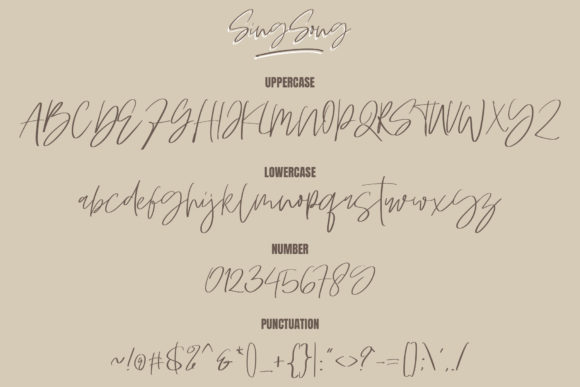 SingSong
UPPERCASE
ABCDEFGHIJKLMNOPQRSTUVWXYZ
LOWERCASE
abcdefghijklmnopqrstuvwxyz
NUMBER
0123456789
PUNCTUATION
~!@#$%^&*()_+{}|:"<>?`-=[];\',./